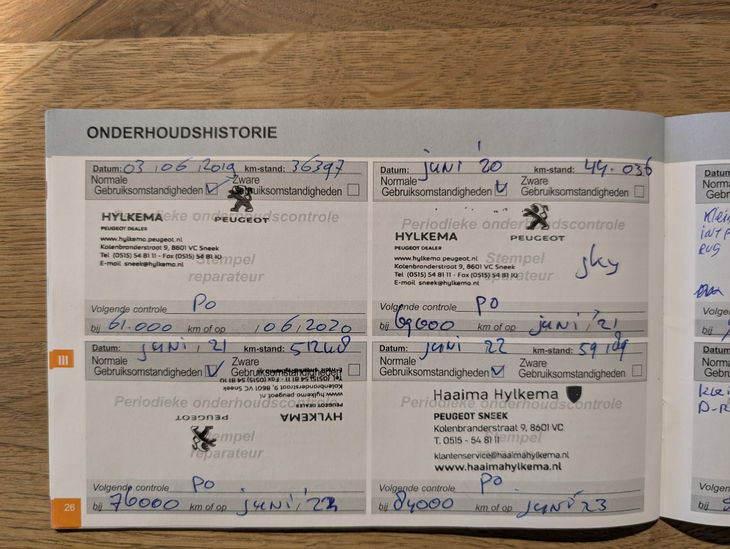 ONDERHOUDSHISTORIE
Datum: 03, 06, 2019 km-stand: 36397
Normale Gebruiksomstandigheden Zware Gebruiksomstandigheden
Periodieke onderhoudscontrole
HYLKEMA
PEUGEOT DEALER
PEUGEOT
www.hylkema.peugeot.nl
Kolenbranderstraat 9, 8601 VC Sneek
Tel (0515) 54 81 11 - Fax (0515) 54 81 10
E-mail sneek@hylkema.nl
Stempel reparateur
Volgende controle PO
bij 61.000 km of op 106,2020
Datum: juni '20 km-stand: 44.036
Normale Gebruiksomstandigheden Zware Gebruiksomstandigheden
Periodieke onderhoudscontrole
HYLKEMA
PEUGEOT DEALER
PEUGEOT
www.hylkema.peugeot.nl
Kolenbranderstraat 9, 8601 VC Sneek
Tel (0515) 54 81 11 - Fax (0515) 54 81 10
E-mail sneek@hylkema.nl
Stempel reparateur
Volgende controle PO
bij 69000 km of op juni, '21
III
Datum: juni, 21 km-stand: 51248
Normale Gebruiksomstandigheden Zware Gebruiksomstandigheden
Periodieke onderhoudscontrole
HYLKEMA
PEUGEOT DEALER
PEUGEOT
www.hylkema.peugeot.nl
Kolenbranderstraat 9, 8601 VC Sneek
Tel (0515) 54 81 11 - Fax (0515) 54 81 10
Stempel reparateur
Volgende controle PO
bij 76000 km of op juni, '22
Datum: juni 22 km-stand:
Normale Gebruiksomstandigheden Zware Gebruiksomstandigheden
Periodieke onderhoudscontrole
Haaima Hylkema
PEUGEOT SNEEK
Kolenbranderstraat 9, 8601 VC
T. 0515 - 54 81 11
klantenservice@haaimahylkema.nl
www.haaimahylkema.nl
Stempel reparateur
Volgende controle PO
bij 84000 km of op juni '23
26